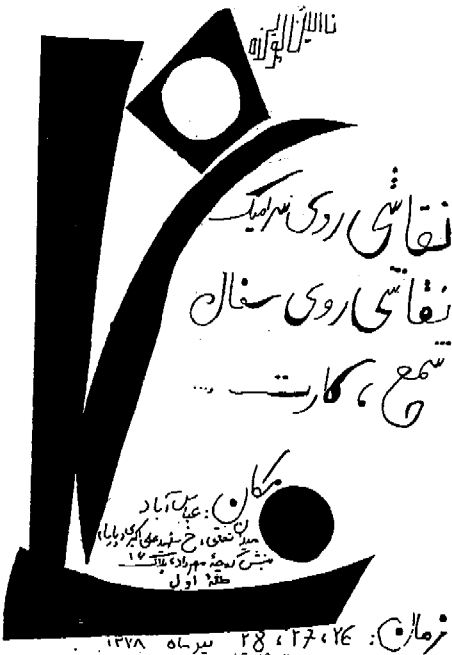 نقاشی روی سرامیک
نقاشی روی سفال
شمع، کارت ...
مکان: عباس آباد
میدان تختی، خ شهید علی اکبری
نبش کوچه مهرداد، پلاک ۱۶
طبقه اول
زمان: ۲۶، ۲۷، ۲۸ تیر ماه ۱۳۷۸